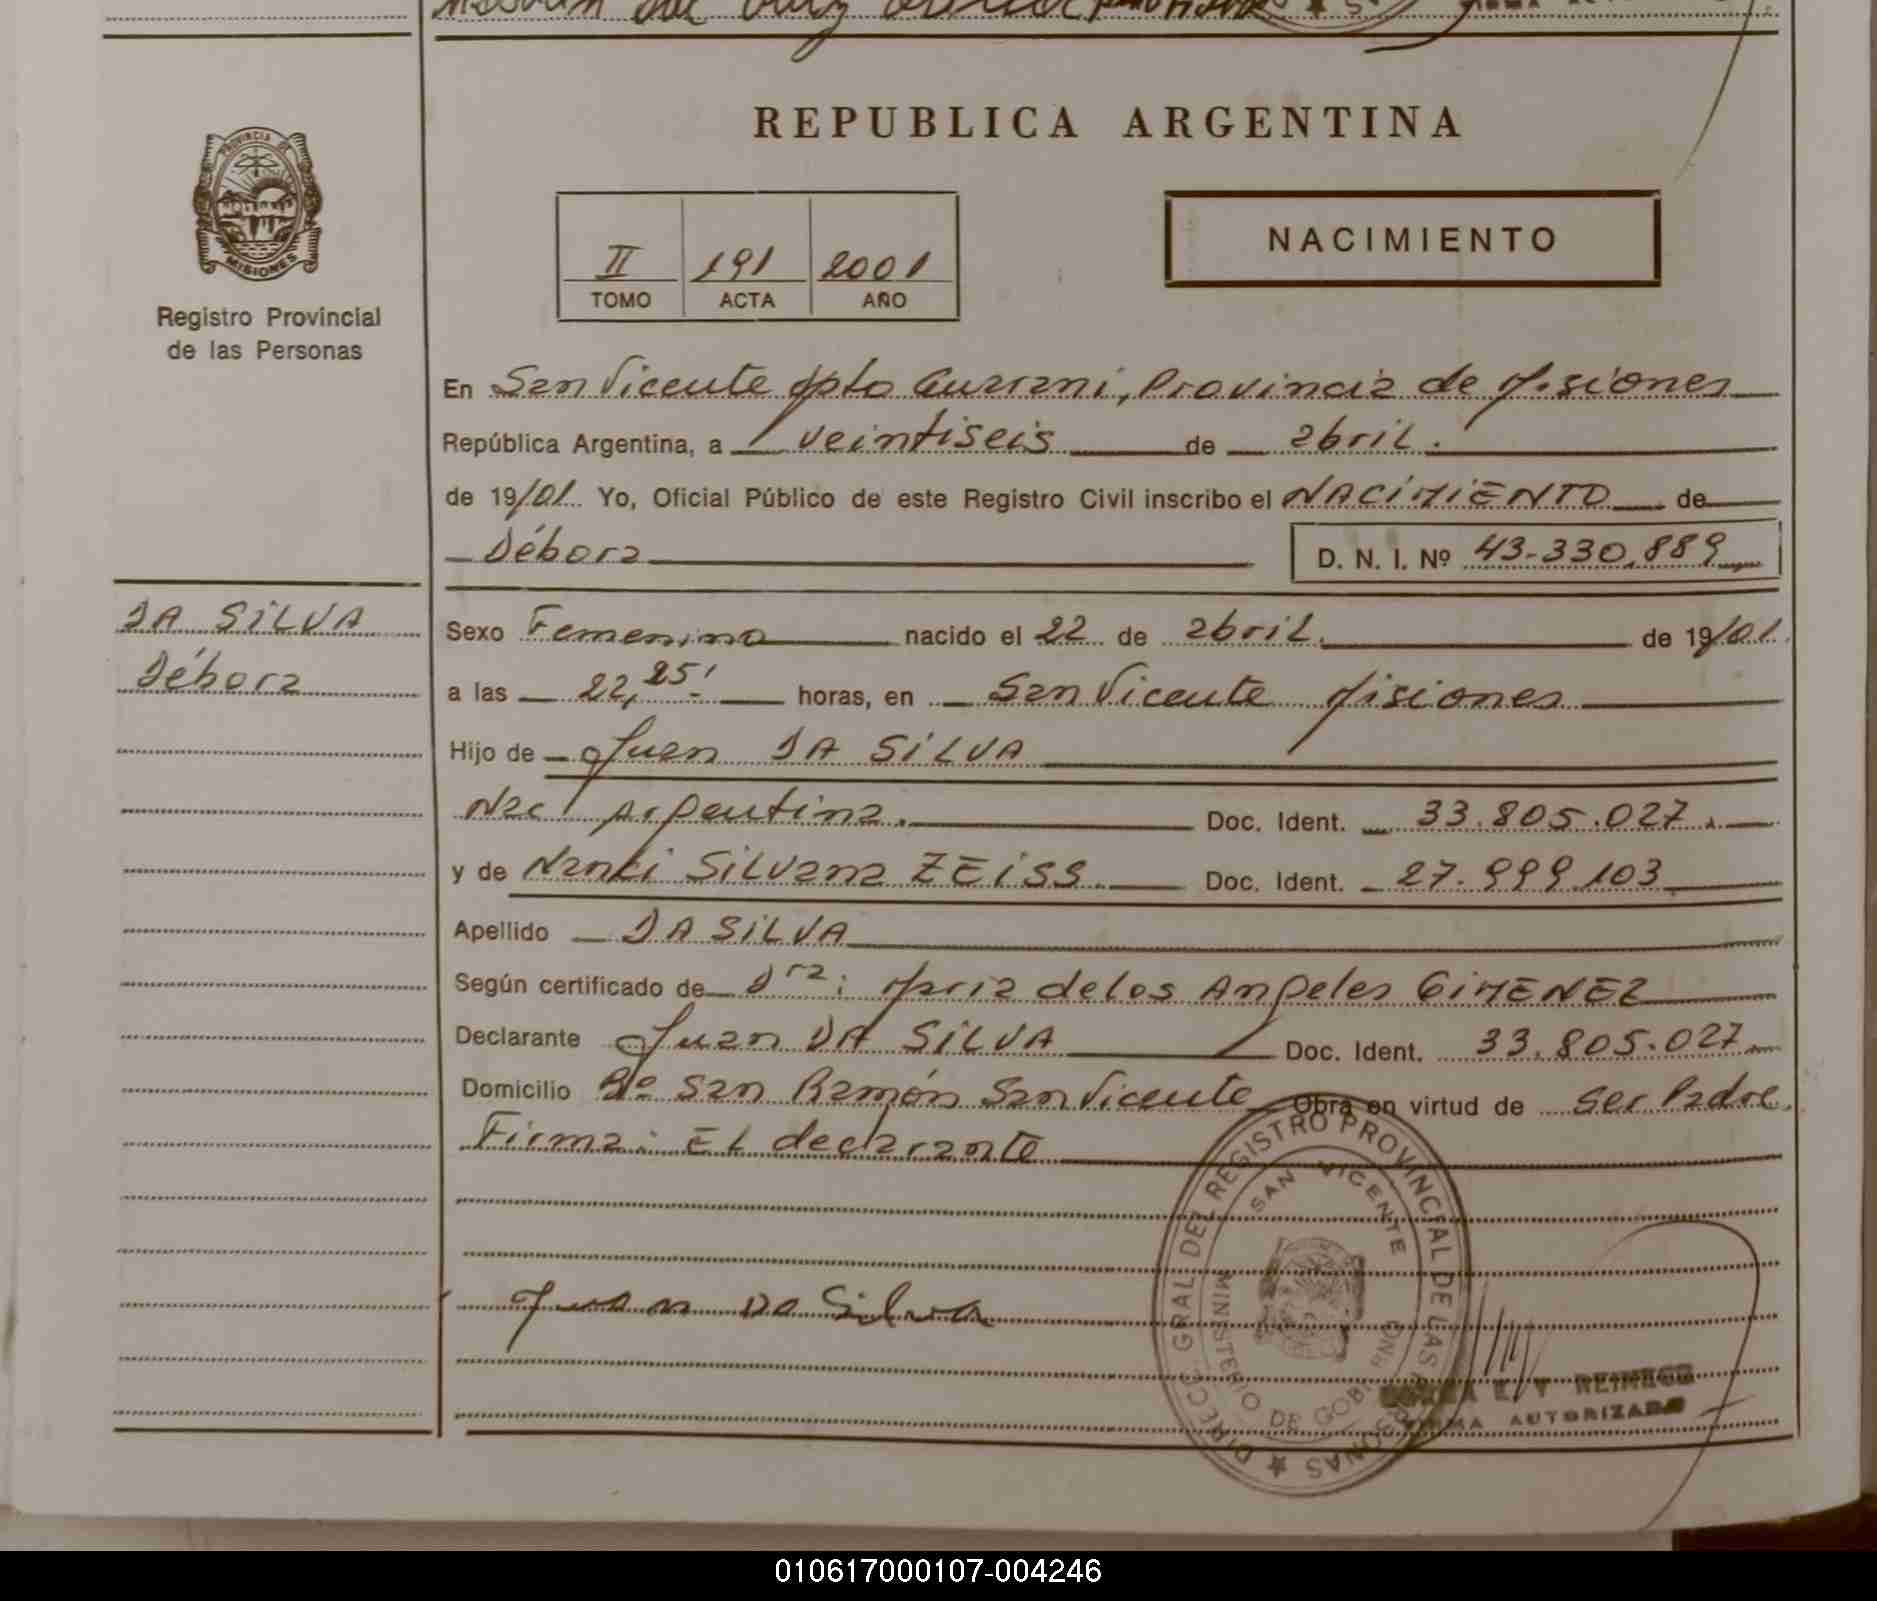 REPUBLICA ARGENTINA
PROVINCIA DE
MISIONES
Registro Provincial
de las Personas
II 191 2001
TOMO ACTA AÑO
NACIMIENTO
En San Vicente dpto Guarani, Provincia de Misiones
República Argentina, a veintiseis de abril.
de 19/01. Yo, Oficial Público de este Registro Civil inscribo el NACIMIENTO de
Débora D. N. I. Nº 43-330.889
DA SILVA
Débora
Sexo Femenino nacido el 22 de abril. de 19/01.
a las 22,25' horas, en San Vicente Misiones
Hijo de Juan DA SILVA
Nac Argentina. Doc. Ident. 33.805.027.
y de Nanci Silvana ZEISS. Doc. Ident. 27.999.103
Apellido DA SILVA
Según certificado de Dra: Maria de los Angeles GIMENEZ
Declarante Juan DA SILVA Doc. Ident. 33.805.027
Domicilio Bº San Ramón San Vicente Obra en virtud de ser Padre.
Firma: El declarante
Juan Da Silva
DIRECC. GRAL DEL REGISTRO PROVINCIAL DE LAS PERSONAS
SAN VICENTE
MINISTERIO DE GOBIERNO
FIRMA AUTORIZADA
010617000107-004246